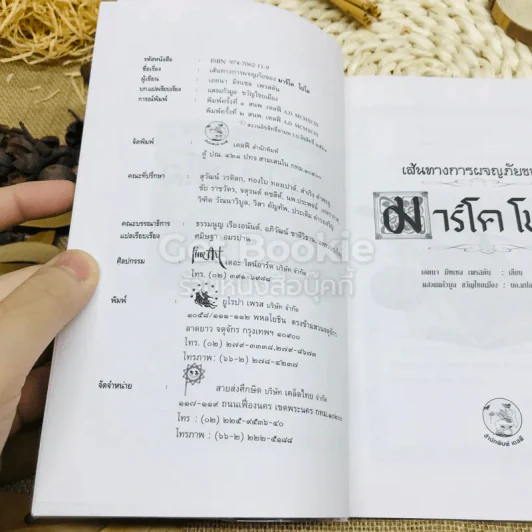 รหัสหนังสือ : ISBN 974-7062-11-9
ชื่อเรื่อง : เส้นทางการผจญภัยของ มาร์โค โปโล
ผู้เขียน : เอดนา มิทเชล เพรสตัน
บก.แปลเรียบเรียง : แสงแก้วมูล ขวัญไชยเมือง
การณ์พิมพ์ : พิมพ์ครั้งที่ ๑ สนพ. เดลฟี A.D.
พิมพ์ครั้งที่ ๒ สนพ. เดลฟี A.D.
จัดพิมพ์ : เดลฟี สำนักพิมพ์
ตู้ ปณ. ๔๒๑ ปทจ.สามเสนใน กทม.
คณะที่ปรึกษา : สุวัฒน์ วรดิลก, ทองใบ ทองเปาด์,
ชัย ราชวัตร, จตุรนต์ คชสีห์, นพ.
วิฑิต วัณนาวิบูล, วิสา คัญทัพ,
คณะบรรณาธิการ : ธรรมนูญ เรืองอนันต์,
แปลเรียบเรียง คมิษฐา อมรปาน
ศิลปกรรม : เดอะ ไลน์อาร์ต บริษัท จำกัด
โทร (๐๒)
พิมพ์ : ยูโรปา เพรส บริษัท จำกัด
๑๐๕๘/๑๑๑-๑๑๒ พหลโยธิน ตรงข้ามสวนจตุจักร
ลาดยาว จตุจักร กรุงเทพฯ ๑๐๙๐๐
โทร. (๐๒) ๒๗๙-๓๓๓๘,๒๗๙-๘๖๗๓
โทรภาพ: (๖๖-๒) ๒๗๘-๔๒๓๗
จัดจำหน่าย : สายส่งศึกษิต บริษัท เคล็ดไทย จำกัด
๑๑๗-๑๑๙ ถนนเฟื่องนคร เขตพระนคร กทม.๑๐๒๐๐
โทร : (๐๒) ๒๒๕-๙๕๓๖-๔๐
โทรภาพ : (๖๖-๒) ๒๒๒-๕๑๘๘
เส้นทางการผจญภัยของ
มาร์โค โป
เอดนา มิทเชล เพรสตัน : เขียน
แสงแก้วมูล ขวัญไชยเมือง : บก.แปล
สำนักพิมพ์ เดลฟี
GetBookie
ร้านหนังสือบุ๊คกี้